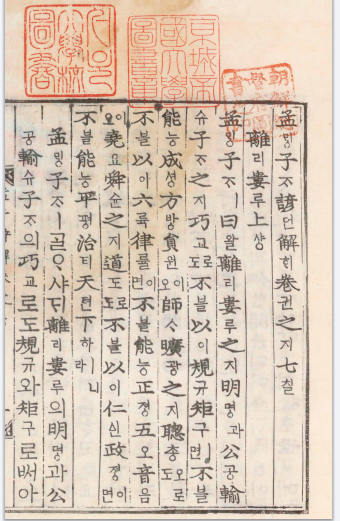 朝鮮總督府圖書之印
京城帝國大學圖書章
서울大學校圖書
孟ᄆᆡᆼ子ᄌᆞ諺언解ᄒᆡ卷권之지七칠
離리婁루上샹
孟ᄆᆡᆼ子ᄌᆞㅣ曰왈離리婁루之지明명과公공輸
슈子ᄌᆞ之지巧교로도不블以이規규矩구ㅣ면不블
能능成셩方방員원이오師ᄉᆞ曠광之지聰총으로도
不블以이六륙律률이면不블能능正졍五오音음
이오堯요舜슌之지道도로도不블以이仁인政졍이면
不블能능平평治티天텬下하ㅣ니라
孟ᄆᆡᆼ子ᄌᆞㅣᄀᆞᆯᄋᆞ샤ᄃᆡ離리婁루의明명과公
공輸슈子ᄌᆞ의巧교로도規규와矩구로ᄡᅥ아